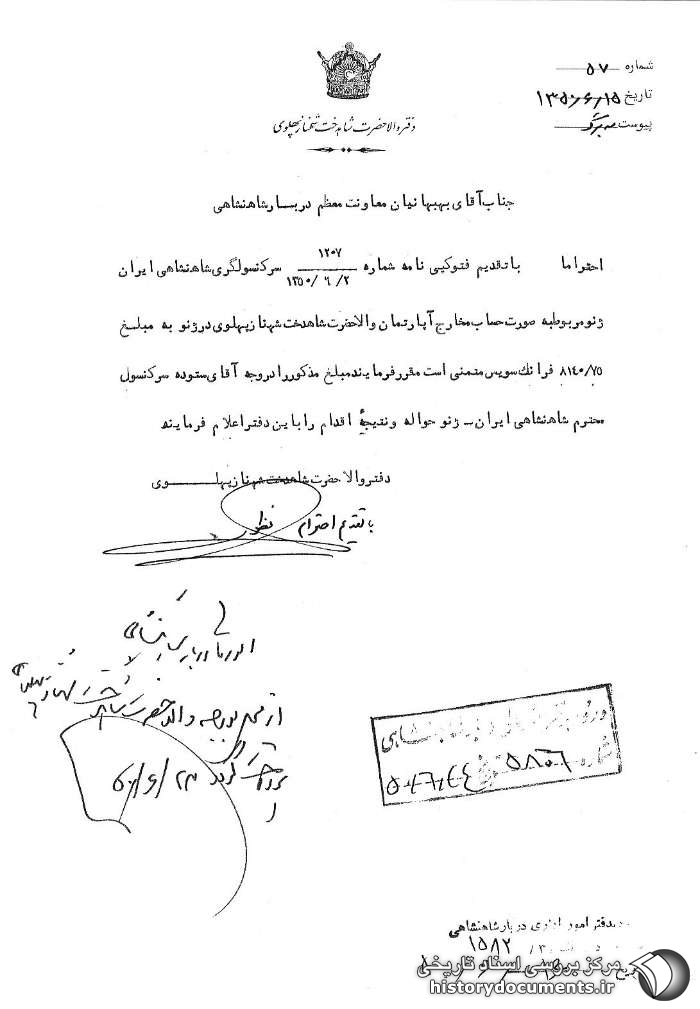 شماره ۵۷
تاریخ ۱۳۵۰/۶/۱۵
پیوست سه برگ
دفتر والاحضرت شاهدخت شهناز پهلوی
جناب آقای بهبهانیان معاونت معظم دربار شاهنشاهی
احتراما با تقدیم فتوکپی نامه شماره ۱۲۰۷ ۱۳۵۰/۶/۲ سرکنسولگری شاهنشاهی ایران
ژنو مربوط به صورت حساب مخارج آپارتمان والاحضرت شاهدخت شهناز پهلوی در ژنو به مبلغ
۸۱۴۰/۷۵ فرانک سویس متمنی است مقرر فرمایند مبلغ مذکور را در وجه آقای ستوده سرکنسول
محترم شاهنشاهی ایران - ژنو حواله و نتیجهٔ اقدام را باین دفتر اعلام فرمایند
دفتر والاحضرت شاهدخت شهناز پهلوی
با تقدیم احترام
از محل بودجه والاحضرت
گردد ۵۰/۶/۲۳
شماره ۵۸۰۶
دفتر امور اداری دربار شاهنشاهی
۱۵۸۲
مرکز بررسی اسناد تاریخی
historydocuments.ir